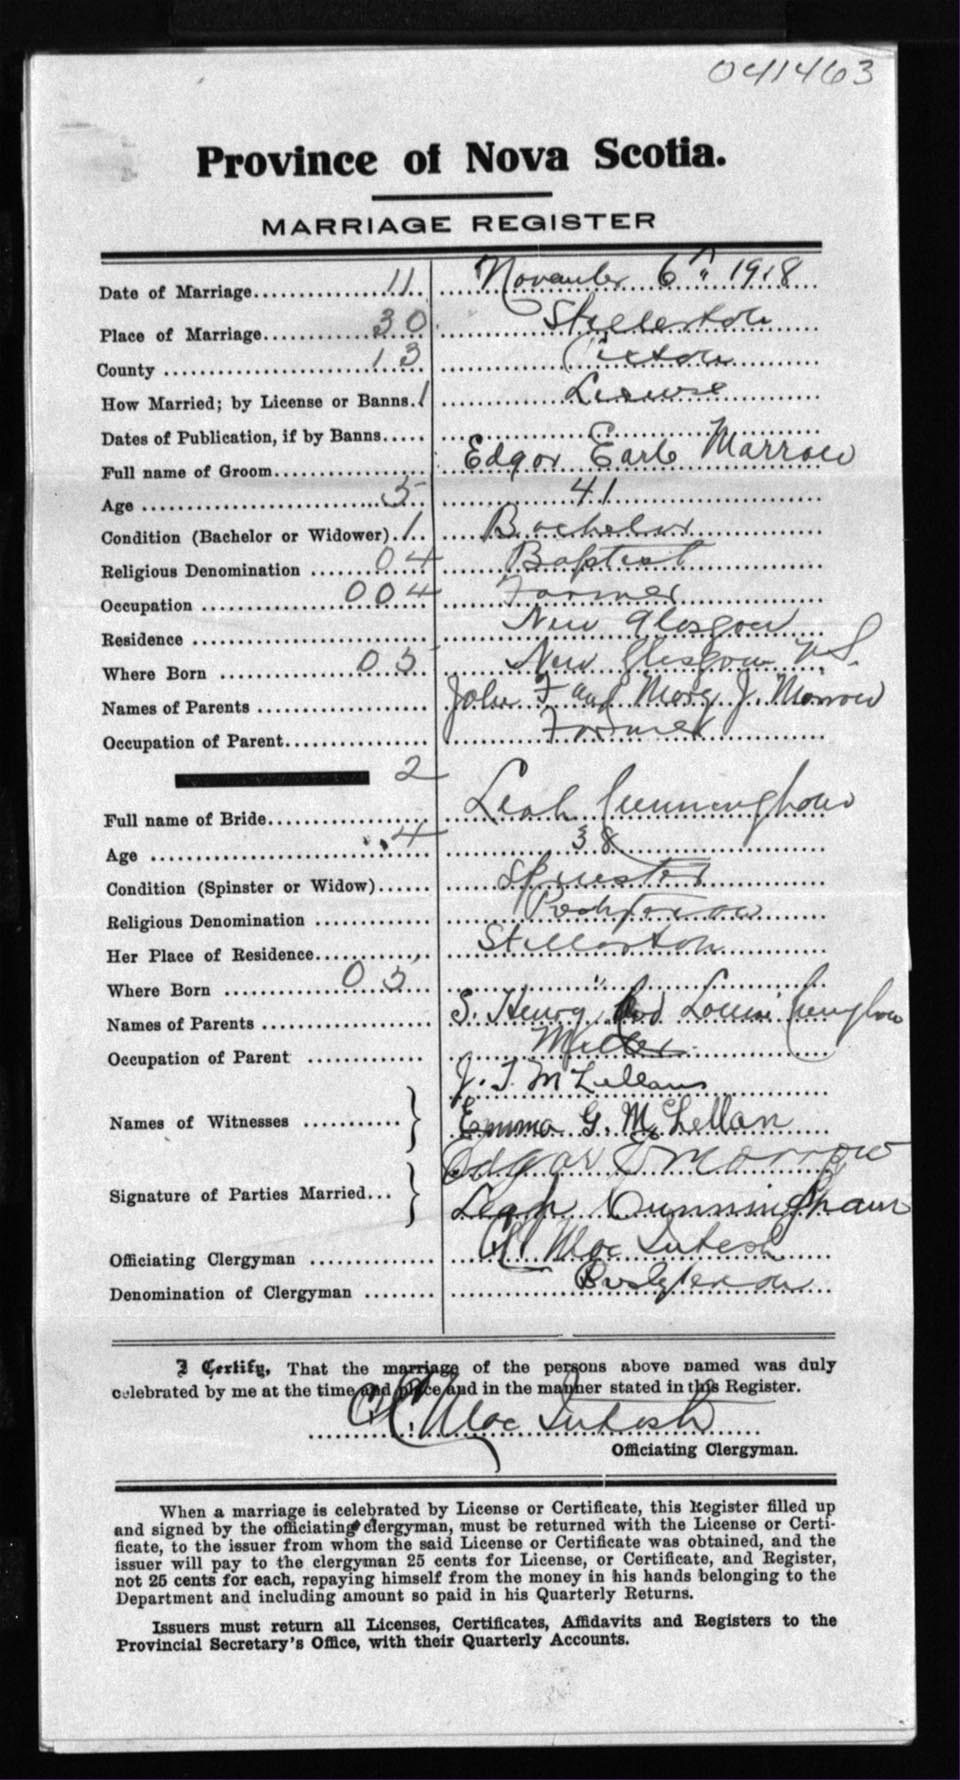 041463
Province of Nova Scotia.
MARRIAGE REGISTER
Date of Marriage 11 November 6th 1918
Place of Marriage 30 Stellarton
County 13 Pictou
How Married; by License or Banns. 1 License
Dates of Publication, if by Banns
Full name of Groom Edgar Earle Marrow
Age 5 41
Condition (Bachelor or Widower) 1 Bachelor
Religious Denomination 04 Baptist
Occupation 004 Farmer
Residence New Glasgow
Where Born 05 New Glasgow N.S.
Names of Parents John F and Mary J. Morrow
Occupation of Parent Farmer
2
Full name of Bride Leah Cunningham
Age 4 38
Condition (Spinster or Widow) Spinster
Religious Denomination
Her Place of Residence Stellarton
Where Born 05 "
Names of Parents S. Henry and Louisa
Occupation of Parent
Names of Witnesses } J. T. McLellan
Emma G. McLellan
Signature of Parties Married } Edgar E Morrow
Leah Cunningham
Officiating Clergyman MacIntosh
Denomination of Clergyman Presbyterian
I Certify, That the marriage of the persons above named was duly
celebrated by me at the time and place and in the manner stated in this Register.
MacIntosh
Officiating Clergyman.
When a marriage is celebrated by License or Certificate, this Register filled up
and signed by the officiating clergyman, must be returned with the License or Certi-
ficate, to the issuer from whom the said License or Certificate was obtained, and the
issuer will pay to the clergyman 25 cents for License, or Certificate, and Register,
not 25 cents for each, repaying himself from the money in his hands belonging to the
Department and including amount so paid in his Quarterly Returns.
Issuers must return all Licenses, Certificates, Affidavits and Registers to the
Provincial Secretary's Office, with their Quarterly Accounts.